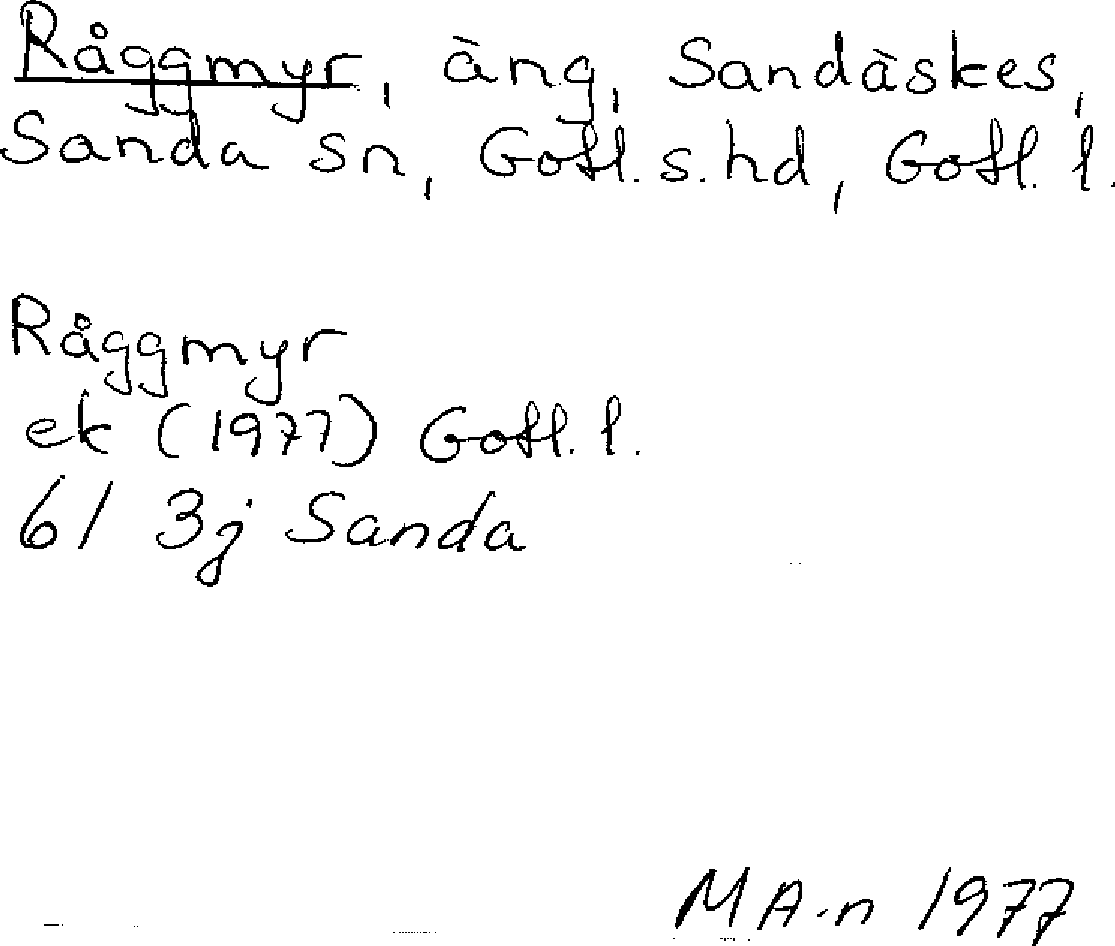 Råggmyr, äng, Sandäskes,
Sanda sn, Gotl. s. hd, Gotl. l.
Råggmyr
ek (1977) Gotl. l.
6I 3j Sanda
MA-n 1977